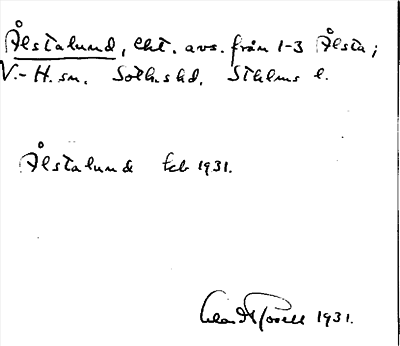 Ålstalund, lht. avs. från 1-3 Ålsta;
V.-H. sn. Soth. hd. Sthlms l.
Ålstalund Ecb 1931.
1931.